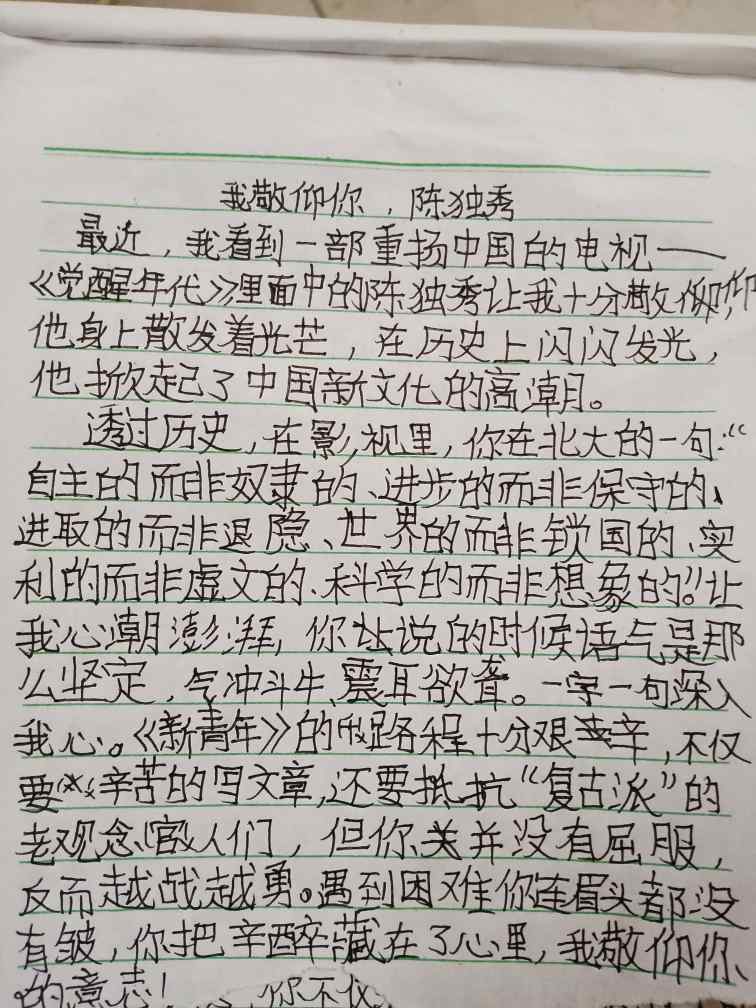 我敬仰你，陈独秀
最近，我看到一部重扬中国的电视——
《觉醒年代》里面中的陈独秀让我十分敬仰，
他身上散发着光芒，在历史上闪闪发光，
他掀起了中国新文化的高潮。
透过历史，在影视里，你在北大的一句：“
自主的而非奴隶的、进步的而非保守的、
进取的而非退隐、世界的而非锁国的、实
利的而非虚文的、科学的而非想象的。”让
我心潮澎湃，你说的时候语气是那
么坚定，气冲斗牛、震耳欲聋。一字一句深入
我心。《新青年》的路程十分艰辛，不仅
要辛苦的写文章，还要抵抗“复古派”的
老观念、官人们，但你并没有屈服，
反而越战越勇。遇到困难你连眉头都没
有皱，你把辛酸藏在了心里，我敬仰你、
的意志！你不仅